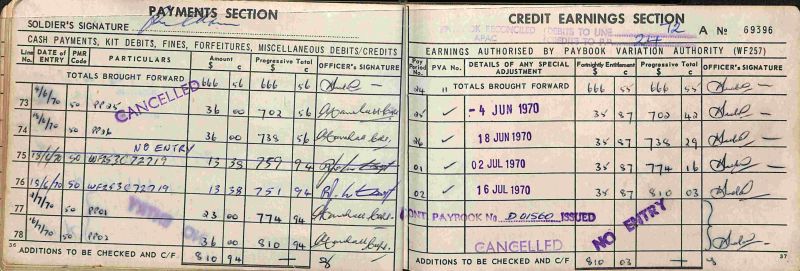 PAYMENTS SECTION
SOLDIER'S SIGNATURE
CASH PAYMENTS, KIT DEBITS, FINES, FORFEITURES, MISCELLANEOUS DEBITS/CREDITS
Line No. DATE OF ENTRY PMR Code PARTICULARS Amount $ c Progressive Total $ c OFFICER'S SIGNATURE
TOTALS BROUGHT FORWARD 666 56 666 56
CANCELLED
73 /6/70 50 PP25 36 00 702 56
74 /6/70 50 PP26 36 00 738 56
NO ENTRY
75 15/6/70 50 WF253C72719 13 38 751 94
76 15/6/70 50 WF253C72719 13 38 751 94
77 /7/70 50 PP01 23 00 774 94
78 /7/70 50 PP02 36 00 810 94
36 ADDITIONS TO BE CHECKED AND C/F 810 94
CREDIT EARNINGS SECTION
PAYBOOK RECONCILED
APAC
DEBITS TO LINE 72
CREDITS TO P.P. 24
A No 69396
EARNINGS AUTHORISED BY PAYBOOK VARIATION AUTHORITY (WF257)
Pay Period No. PVA No. DETAILS OF ANY SPECIAL ADJUSTMENT Fortnightly Entitlement $ c Progressive Total $ c OFFICER'S SIGNATURE
24 " TOTALS BROUGHT FORWARD 666 55 666 55
25 ✓ -4 JUN 1970 35 87 702 42
26 ✓ 18 JUN 1970 35 87 738 29
01 ✓ 02 JUL 1970 35 87 774 16
02 ✓ 16 JUL 1970 35 87 810 03
CONT. PAYBOOK No. D 01560 ISSUED
CANCELLED
NO ENTRY
ADDITIONS TO BE CHECKED AND C/F 810 03 37